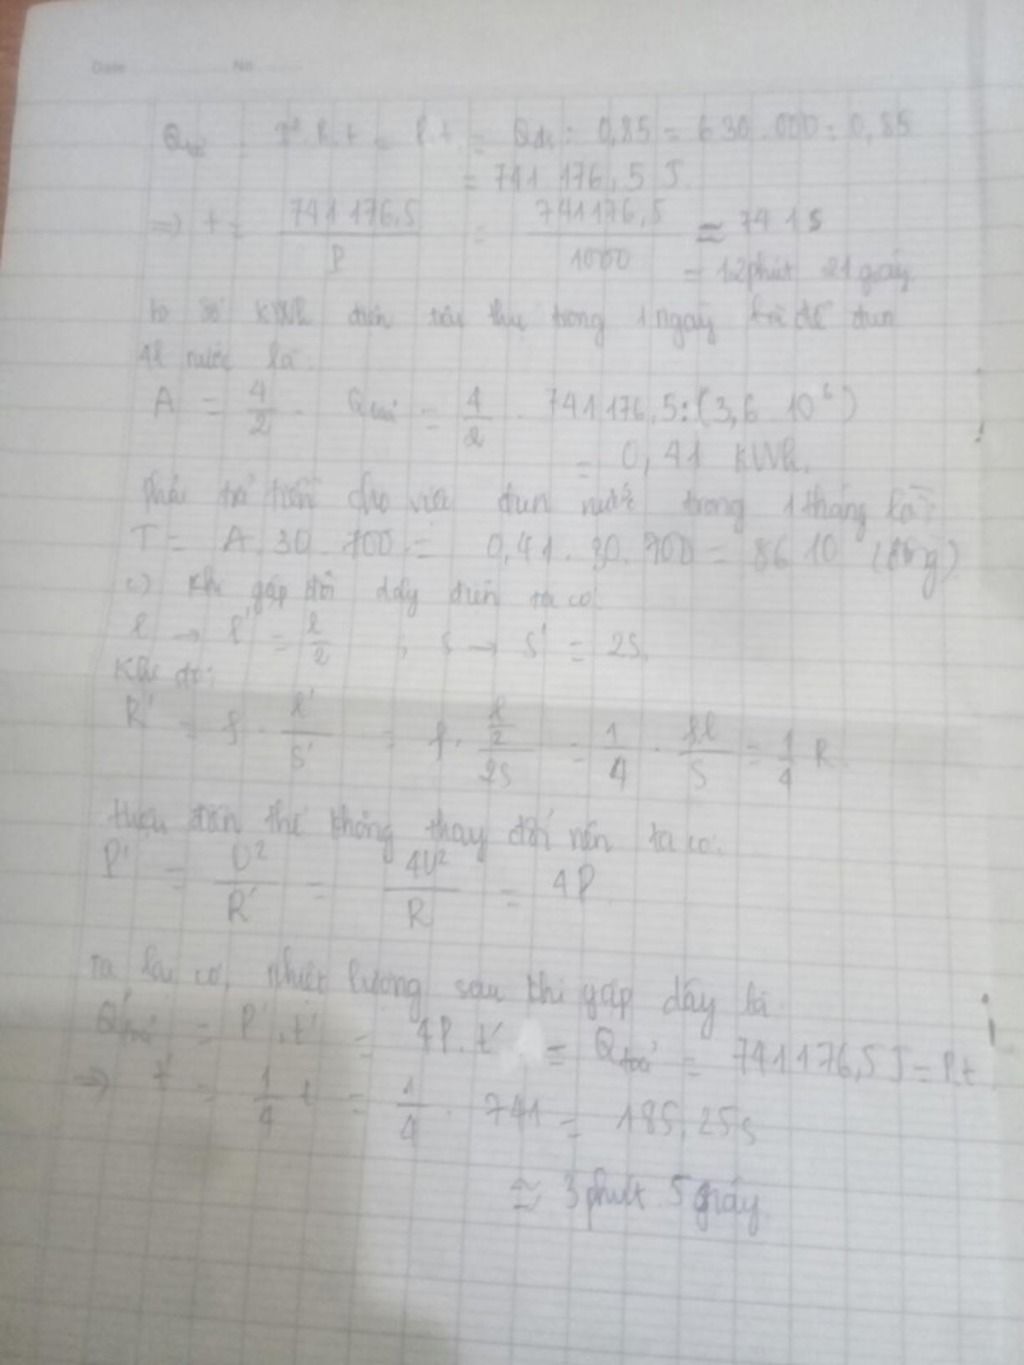 Date No
Q = I².R.t = P.t = Q : 0,85 = 630.000 : 0,85
= 741 176,5 J
=> t = 741 176,5 / P = 741176,5 / 1000 ≈ 741s
= 12 phút 21 giây
b số KWh điện tiêu thụ trong 1 ngày để đun
4l nước là
A = 4/2 . Q = 4/2 . 741 176,5 : (3,6 10⁶)
= 0,41 KWh.
phải trả tiền cho việc đun nước trong 1 tháng là:
T = A.30.700 = 0,41.30.700 = 8610
c) Khi gấp đôi dây điện ta có
l → l' = l/2 , S → S' = 2S.
Khi đó:
R' = ρ . l'/S' = ρ . l/2 / 2S = 1/4 . ρl/S = 1/4 R
điện thế không thay đổi nên ta có:
P' = U²/R' = 4U²/R = 4P
ta lại có, nhiệt lượng sau khi gấp dây là
Q' = P'.t' = 4P.t' = Qtoả = 741176,5 J = P.t
=> t' = 1/4 t = 1/4 . 741 = 185,25s
≈ 3 phút 5 giây.